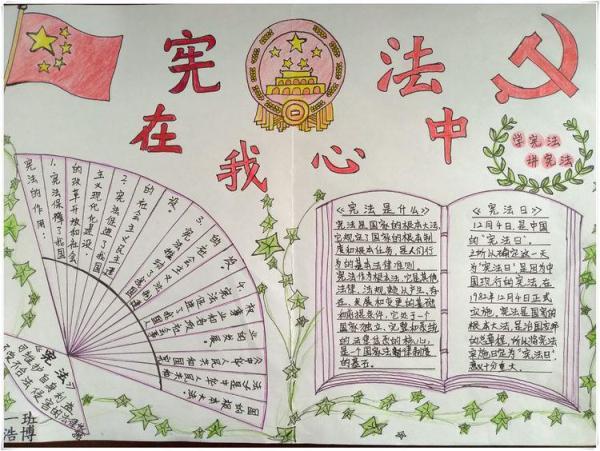 宪法
在我心中
学宪法
讲宪法
宪法的作用：
1.宪法保障了我国
的改革开放和社会
主义现代化建设。
2.宪法促进了我国
的社会主义民主建
设。
3.宪法推动了我国
的社会主义法制
建设。
4.宪法促进了我国人
权事业和各项社会主
业的发展。
《宪法》
《宪法是什么》
宪法是国家的根本大法，
它规定了国家的根本制
度和根本任务，是人们行
为的基本法律准则。
宪法作为根本法，它是其他
法律、法规赖以产生、存
在、发展和变更的基础
和前提条件，它处于一个
国家独立、完整和系统
的法律体系的核心，
是一个国家法制制度
的基石。
《宪法日》
12月4日，是中国
的“宪法日”。
之所以确定这一天
为“宪法日”，是因为中
国现行的宪法，在
1982年12月4日正式
实施，宪法是国家的
根本大法，是治国安邦
的总章程，所以将宪法
实施日定为“宪法日”，
意义十分重大。
一班
浩博